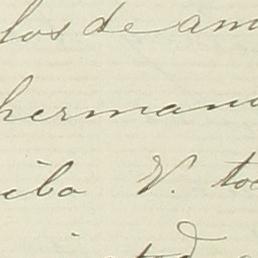 los de am
herman
iba V. to